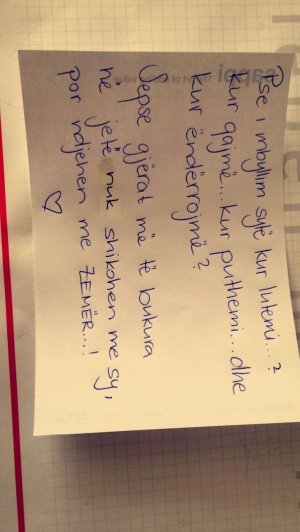 Pse i mbyllim sytë kur lutemi...?
Kur qajmë...kur puthemi...dhe
kur ëndërrojmë?
Sepse gjërat më të bukura
në jetë nuk shikohen me sy,
por ndjehen me ZEMËR...!